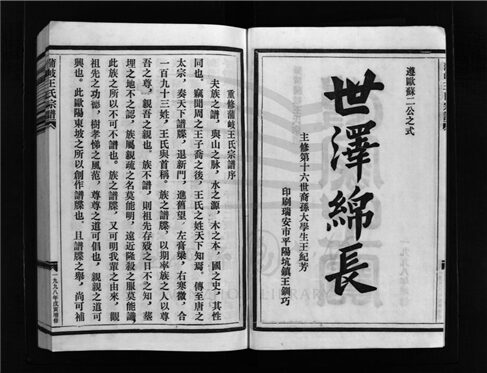 遵歐蘇二公之式
世澤綿長
主修第十六世裔孫大學生王紀芳
印刷瑞安市平陽坑鎮王鋼巧
重修蒲岐王氏宗譜序
夫族之譜，與山之脉，水之源，木之本，國之史，其性
同也。竊聞周之王子喬之後，王氏之姓天下知焉，傳至唐之
太宗，奏天下譜牒，退新門，進舊望，左膏粱，右寒微，合
一百九十三姓，王氏與首稱。族之譜牒，以期率族之人以尊
吾之尊，親吾之親也。族不譜，則祖先存歿之日不之知，墓
埋之地不之認，族屬親疏之名莫能明，遠近隆殺之服莫能識，
此族之所以不可不譜也。族之譜牒，又可明我輩之由來，觀
祖先之功德，樹孝悌之風范，尊尊之道可倡也，親親之道可
興也。此歐陽東坡之所以創作譜牒也。且譜牒之舉，尚可補
蒲岐王氏宗譜
一九九八年戊寅增修